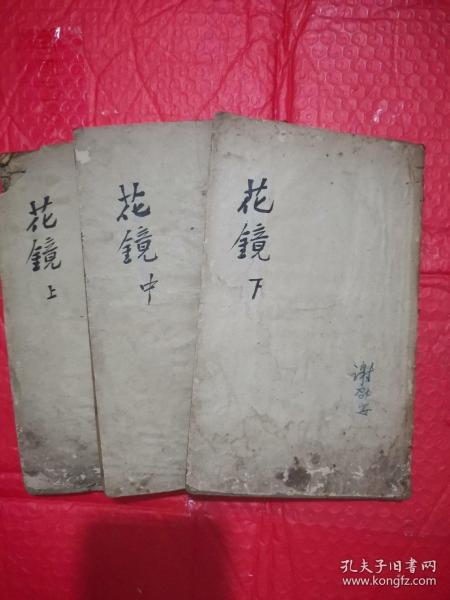 花鏡 上
花鏡 中
花鏡 下
孔夫子旧书网
www.kongfz.com